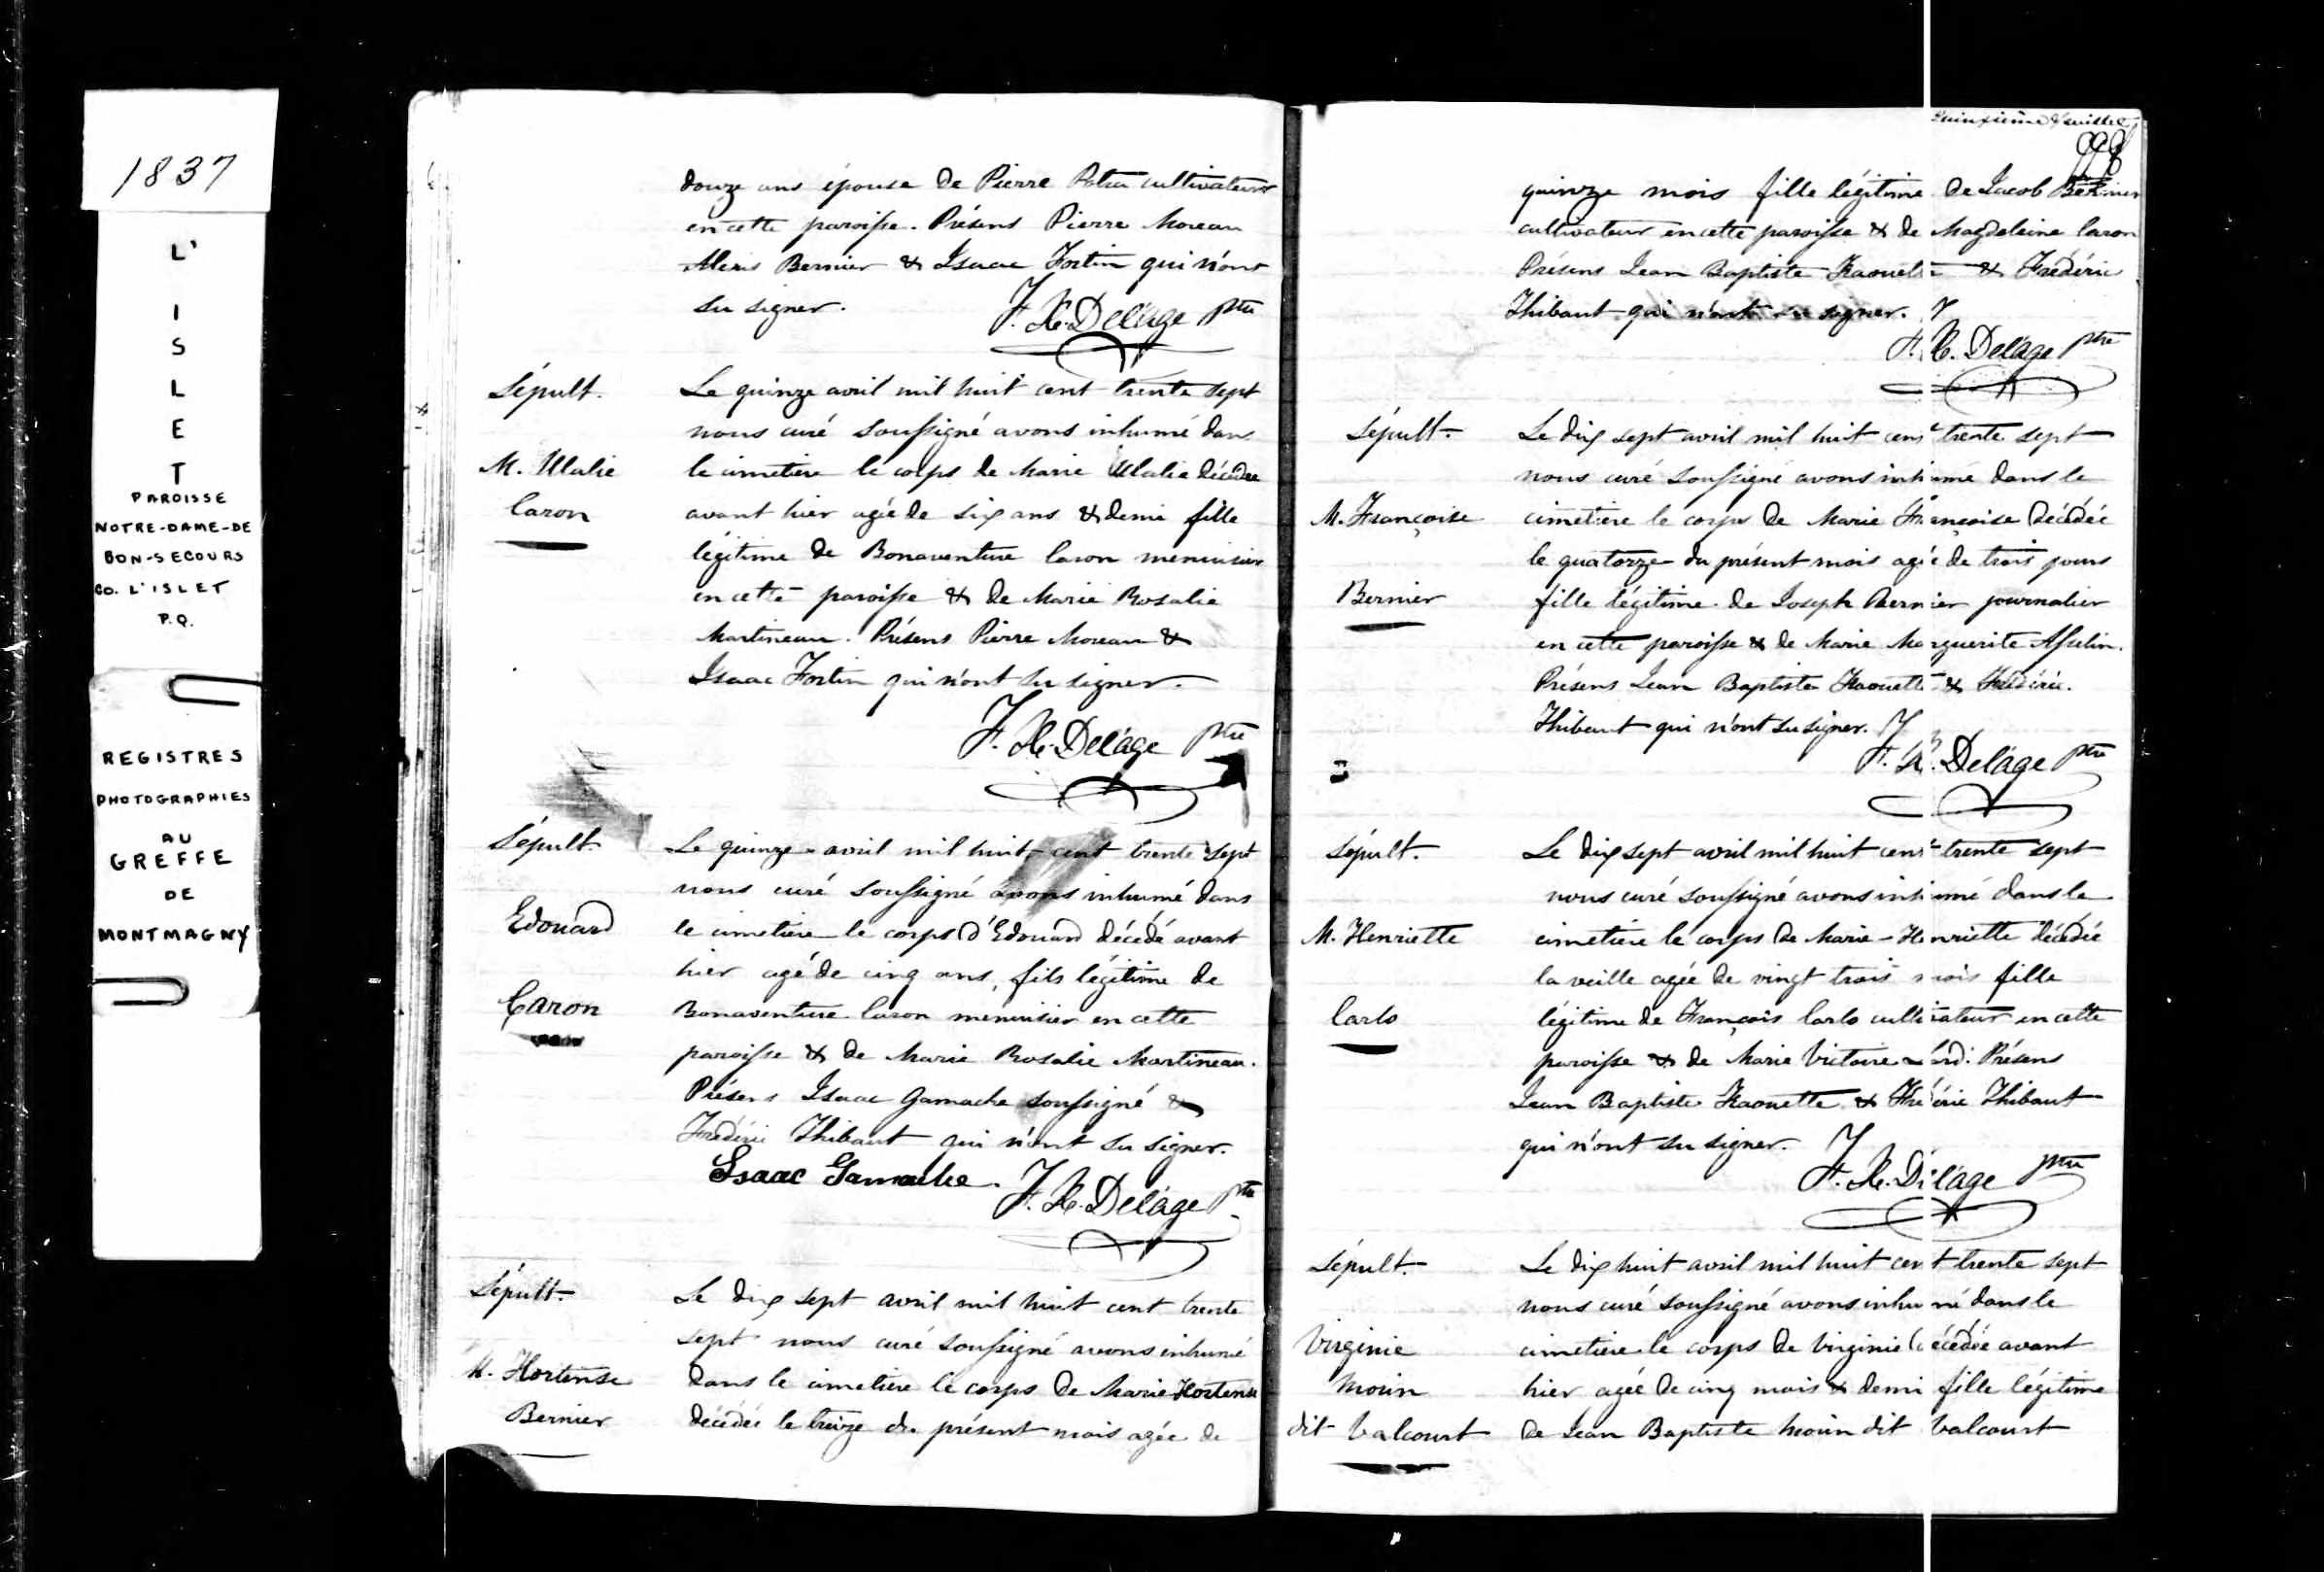 1837
L'
I
S
L
E
T
PAROISSE
NOTRE-DAME-DE
BON-SECOURS
CO. L'ISLET
P.Q.
REGISTRES
PHOTOGRAPHIES
AU
GREFFE
DE
MONTMAGNY
douze ans épouse de Pierre cultivateur
en cette paroisse. Présens Pierre Moreau
Alexis Bernier & Isaac Fortin qui n'ont
su signer.
F. X. Delâge ptre
Sépult.
M. Ulalie
Caron
Le quinze avril mil huit cent trente sept
nous curé soussigné avons inhumé dans
le cimetière le corps de Marie Ulalie décédée
avant hier agée de six ans & demi fille
légitime de Bonaventure Caron menuisier
en cette paroisse & de Marie Rosalie
Martineau. Présens Pierre Moreau &
Isaac Fortin qui n'ont su signer.
F. X. Delâge ptre
Sépult.
Edouard
Caron
Le quinze avril mil huit cent trente sept
nous curé soussigné avons inhumé dans
le cimetière le corps d'Edouard décédé avant
hier agé de cinq ans, fils légitime de
Bonaventure Caron menuisier en cette
paroisse & de Marie Rosalie Martineau.
Présens Isaac Gamache soussigné &
Frédéric Thibaut qui n'ont su signer.
Isaac Gamache. F. X. Delâge ptre
Sépult.
M. Hortense
Bernier
Le dix sept avril mil huit cent trente
sept nous curé soussigné avons inhumé
dans le cimetière le corps de Marie Hortense
décédée le treize du présent mois agée de
Quinzième feuillet
quinze mois fille légitime de Jacob Bernier
cultivateur en cette paroisse & de Magdeleine Caron
Présens Jean Baptiste Kaouette & Frédéric
Thibaut qui n'ont su signer.
F. X. Delâge ptre
Sépult.
M. Françoise
Bernier
Le dix sept avril mil huit cent trente sept
nous curé soussigné avons inhumé dans le
cimetière le corps de Marie Françoise décédée
le quatorze du présent mois agée de trois jours
fille légitime de Joseph Bernier journalier
en cette paroisse & de Marie Marguerite Asselin.
Présens Jean Baptiste Kaouette & Frédéric
Thibaut qui n'ont su signer.
F. X. Delâge ptre
Sépult.
M. Henriette
Carlo
Le dix sept avril mil huit cent trente sept
nous curé soussigné avons inhumé dans le
cimetière le corps de Marie-Henriette décédée
la veille agée de vingt trois mois fille
légitime de François Carlo cultivateur en cette
paroisse & de Marie Victoire Présens
Jean Baptiste Kaouette & Frédéric Thibaut
qui n'ont su signer.
F. X. Delâge ptre
Sépult.
Virginie
Morin
dit Valcourt
Le dix huit avril mil huit cent trente sept
nous curé soussigné avons inhumé dans le
cimetière le corps de Virginie décédée avant
hier agée de cinq mois & demi fille légitime
de Jean Baptiste Morin dit Valcourt